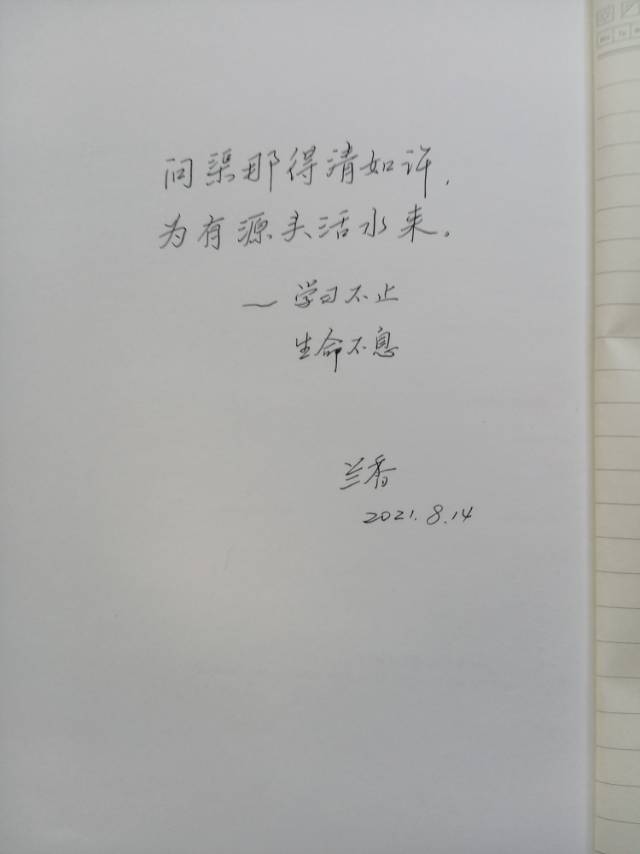 问渠那得清如许，
为有源头活水来。
— 学习不止
生命不息
兰香
2021.8.14